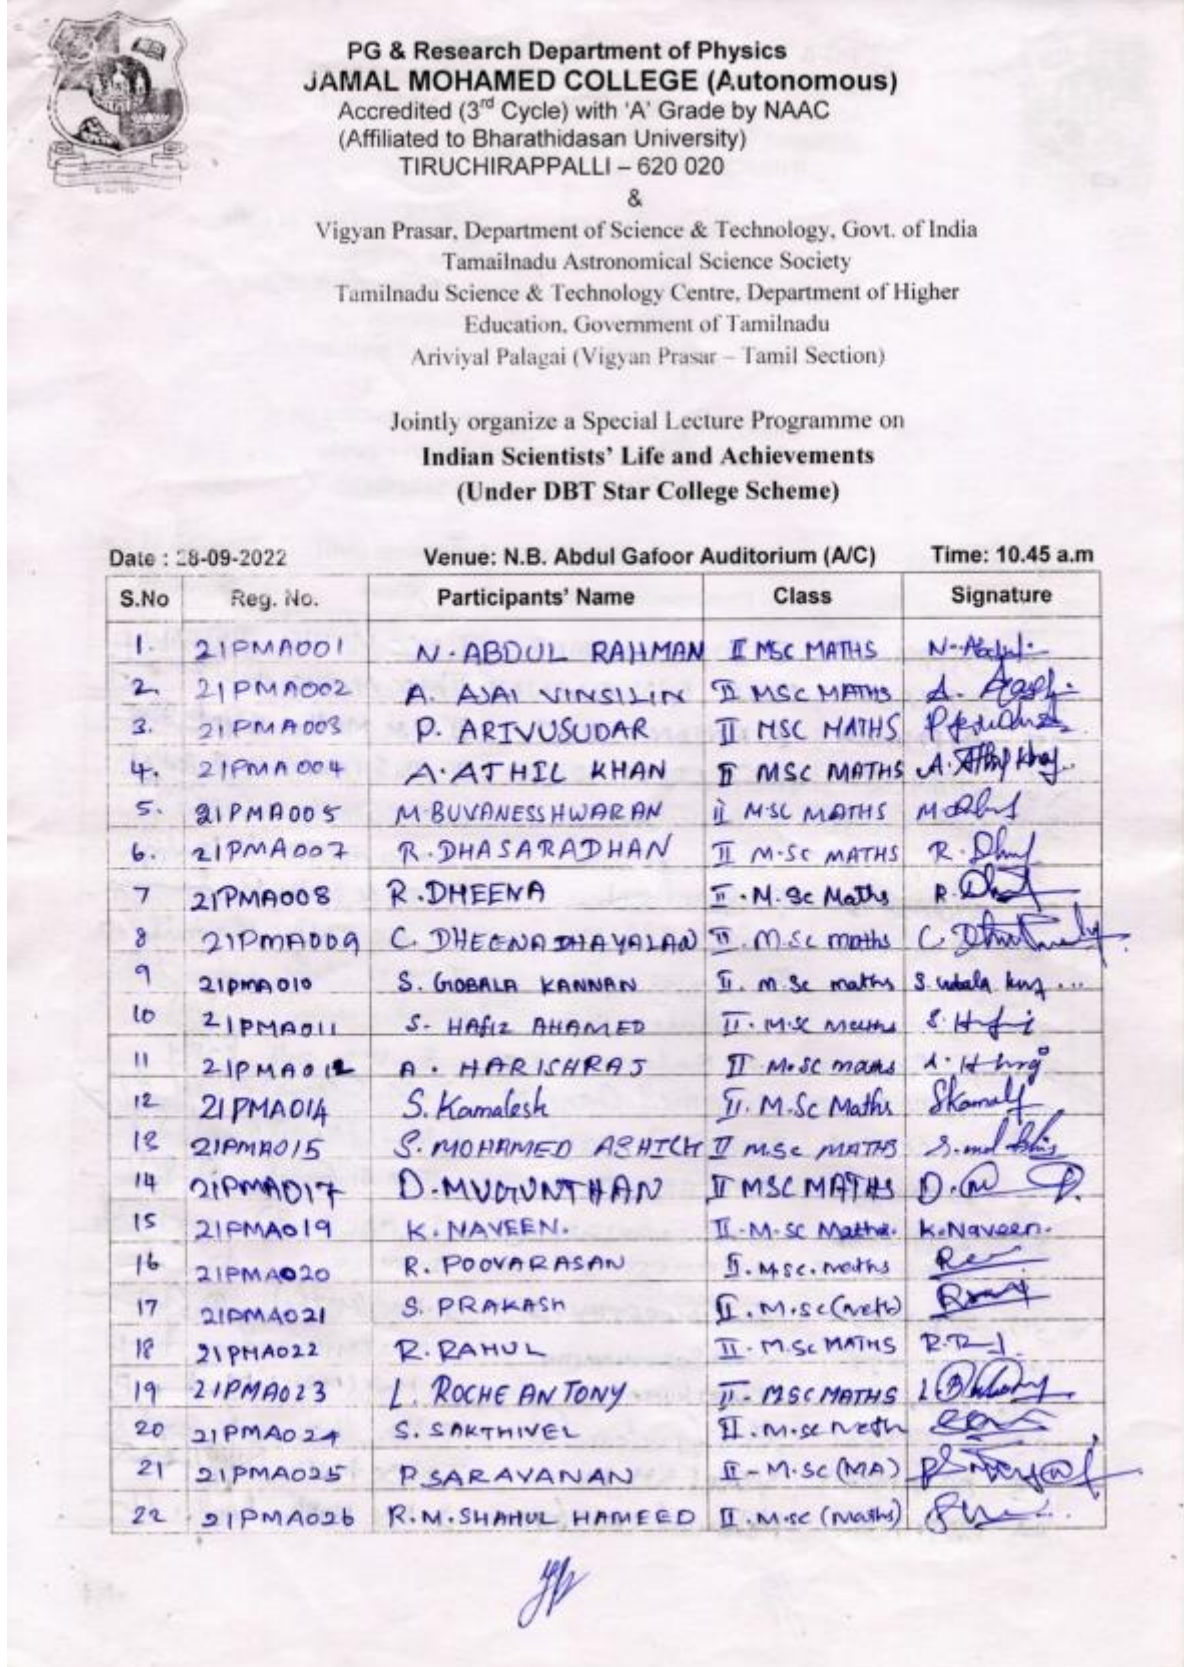 PG & Research Department of Physics
JAMAL MOHAMED COLLEGE (Autonomous)
Accredited (3rd Cycle) with 'A' Grade by NAAC
(Affiliated to Bharathidasan University)
TIRUCHIRAPPALLI – 620 020
&
Vigyan Prasar, Department of Science & Technology, Govt. of India
Tamailnadu Astronomical Science Society
Tamilnadu Science & Technology Centre, Department of Higher
Education, Government of Tamilnadu
Ariviyal Palagai (Vigyan Prasar – Tamil Section)
Jointly organize a Special Lecture Programme on
Indian Scientists' Life and Achievements
(Under DBT Star College Scheme)
Date : 28-09-2022 Venue: N.B. Abdul Gafoor Auditorium (A/C) Time: 10.45 a.m
S.No Reg. No. Participants' Name Class Signature
1. 21PMA001 N. ABDUL RAHMAN II MSC MATHS
2. 21PMA002 A. AJAI VINSILIN II MSC MATHS A.
3. 21PMA003 P. ARIVUSUDAR II MSC MATHS
4. 21PMA004 A. ATHIL KHAN II MSC MATHS A.
5. 21PMA005 M. BUVANESSHWARAN II M.SC MATHS
6. 21PMA007 R. DHASARADHAN II M.SC MATHS R.
7 21PMA008 R. DHEENA II. M. Sc Maths R.
8 21PMA009 C. DHEENADHAYALAN II. M.Sc maths C.
9 21PMA010 S. GOBALA KANNAN II. M.Sc maths S.
10 21PMA011 S. HAfiz AHAMED II. M.Sc Maths S.
11 21PMA012 A. HARISHRAJ II M.SC maths
12 21PMA014 S. Kamalesh II. M.Sc Maths
13 21PMA015 S. MOHAMED ASHICK II M.Sc MATHS
14 21PMA017 D. MUGUNTHAN II MSC MATHS D.
15 21PMA019 K. NAVEEN. II-M.SC Maths. K. Naveen.
16 21PMA020 R. POOVARASAN II. M.SC. maths
17 21PMA021 S. PRAKASH II. M.SC (Math)
18 21PMA022 R. RAHUL II. M.Sc MATHS
19 21PMA023 L. ROCHE ANTONY II- MSC MATHS
20 21PMA024 S. SAKTHIVEL II. M.SC Math
21 21PMA025 P. SARAVANAN II-M.SC (MA)
22 21PMA026 R.M. SHAHUL HAMEED II. M.SC (Maths)